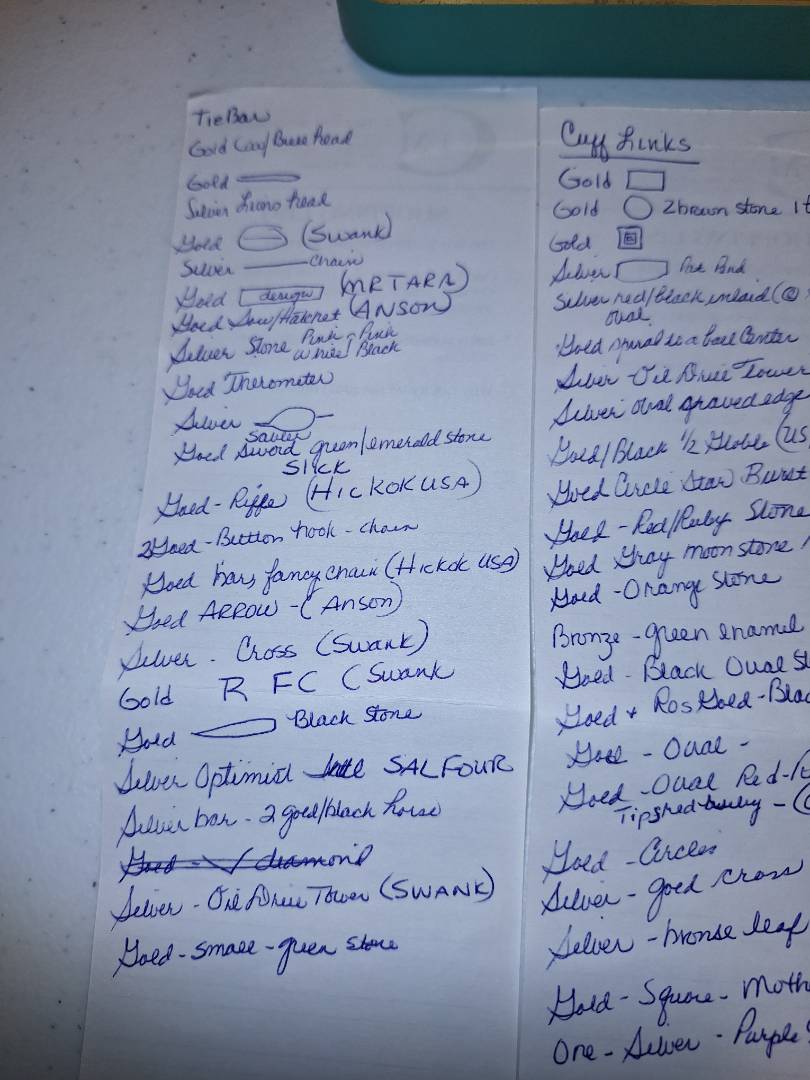 Tie Bar
Gold Cow/ head
Gold
Silver Lions head
Gold (Swank)
Silver chain
Gold design (MR TARA)
Goed Saw/Hatchet (ANSON)
Silver Stone Pink - Pink
White/Black
Goed Therometer
Silver
Saber
Goed Sword green/emerald stone
SlICK
Goed - Riffe (HICKOK USA)
2 Goed - Button hook - chain
Goed bars, fancy chain (Hickok USA)
Goed ARROW - (ANSON)
Silver - Cross (Swank)
Gold R FC (Swank
Gold Black Stone
Silver Optimist SALFOUR
Silver bar - 2 gold/black horse
Goed - diamond
Silver - Oil Drill Tower (SWANK)
Gold - small - green stone
Cuff Links
Gold
Gold 2 brown stone 1 t
Gold
Silver
Silver red/black inlaid (
oval
Gold spiral ball Center
Silver - Oil Drill Tower
Silver oval graved edge
Goed/Black 1/2 Globe (US
Goed Circle Star Burst
Goed - Red/Ruby Stone
Goed Gray moonstone
Goed - Orange Stone
Bronze - green enamel
Goed - Black Oval St
Goed + Ros Gold - Blac
Goed - Oval -
Goed - Oval Red -
Goed - Circles
Silver - goed cross
Silver - bronse leaf
Gold - Square - Moth
One - Silver - Purple